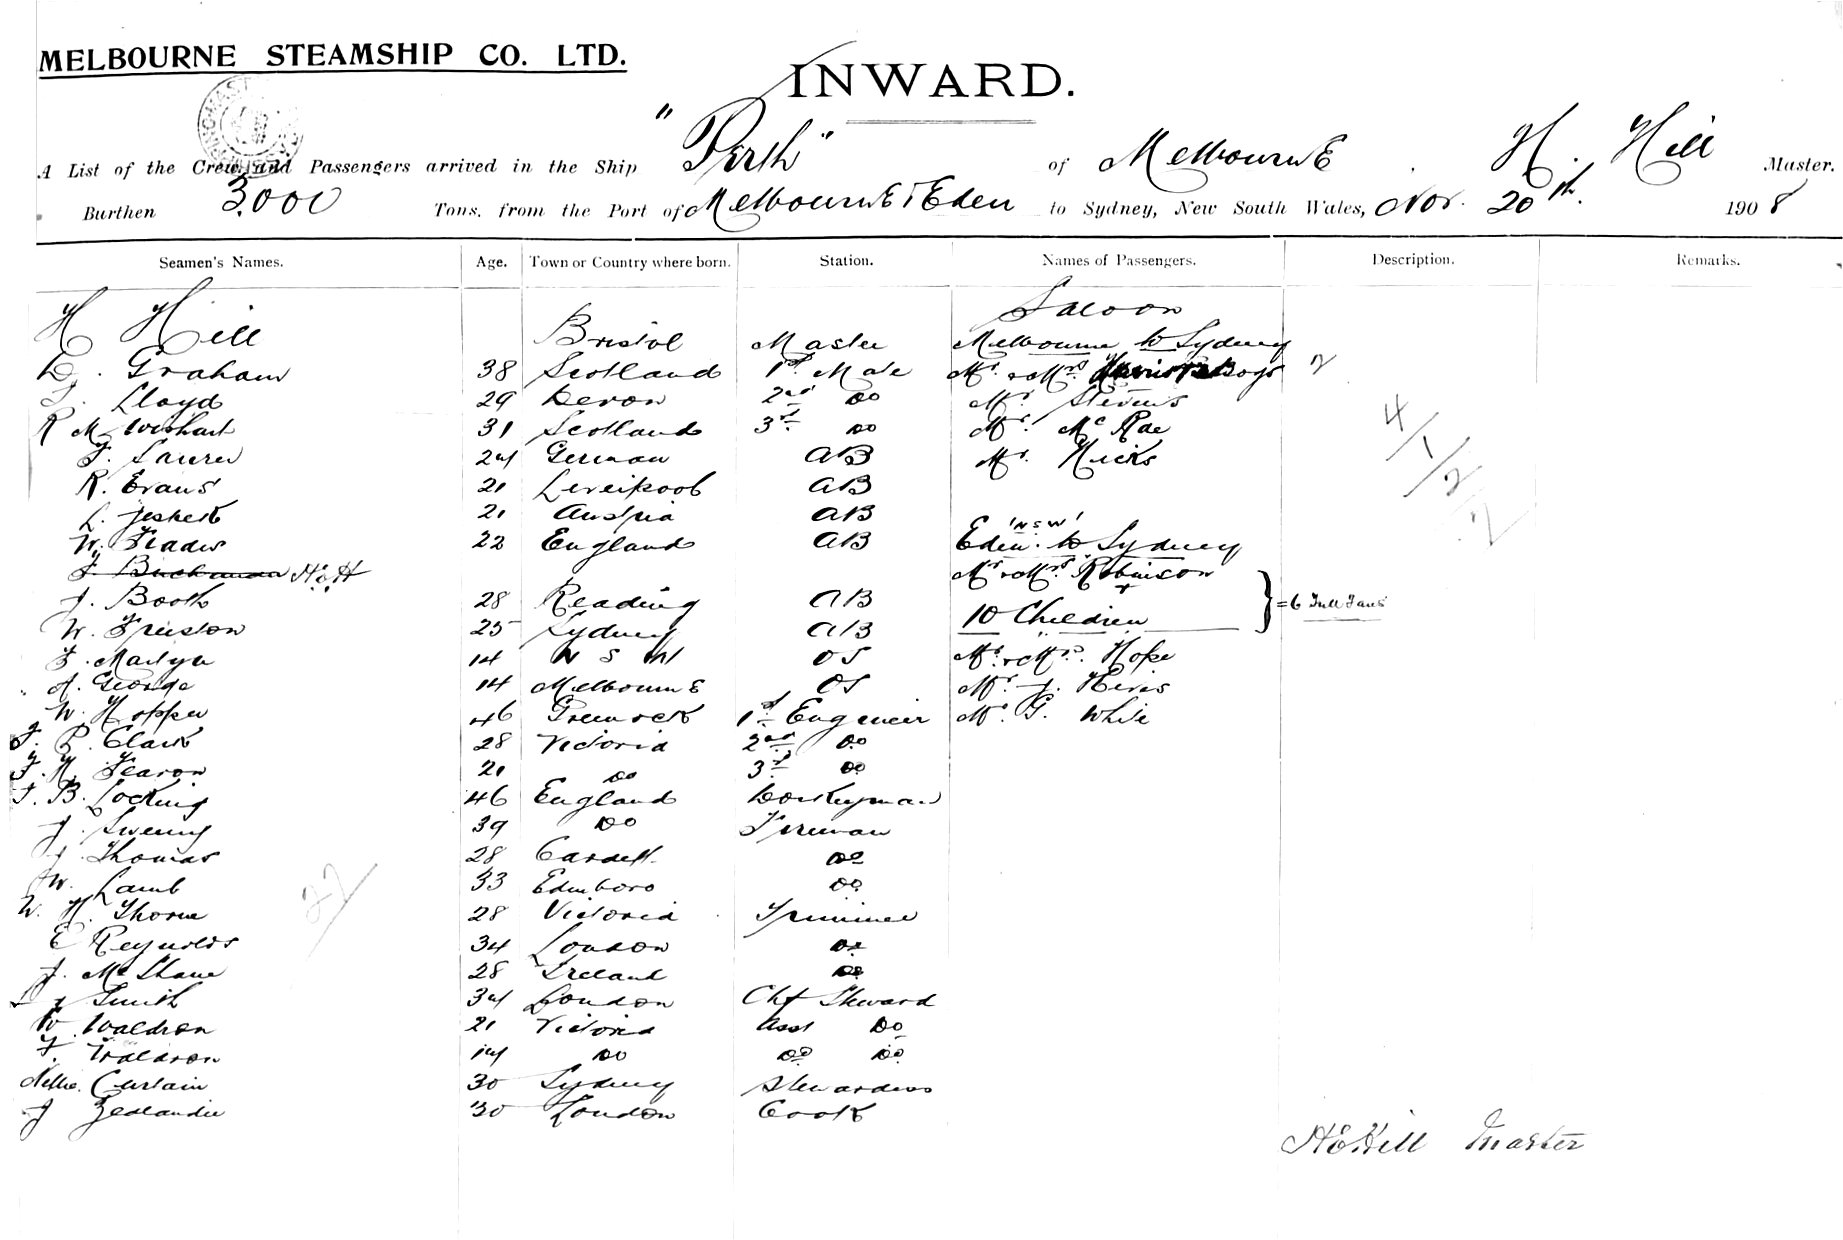 MELBOURNE STEAMSHIP CO. LTD.
INWARD.
A List of the Crew and Passengers arrived in the Ship "Perth" of Melbourne . H. Hill Master.
Burthen 3000 Tons. from the Port of Melbourne & Eden to Sydney, New South Wales, Nov. 20th. 1908
Seamen's Names. Age. Town or Country where born. Station. Names of Passengers. Description. Remarks.
Saloon
H Hill Bristol Master Melbourne to Sydney
D. Graham 38 Scotland 1st Mate Mr. & Mrs. Boys 2
Lloyd 29 Devon 2nd Do Mr Stevens
R M Wishart 31 Scotland 3rd Do Mr. Mc Rae
24 German AB Mr. Hicks
R. Evans 21 Liverpool AB
L. 21 Austria AB
'NSW'
W. 22 England AB Eden to Sydney
J. Buchanan Mr & Mrs Robinson
+
J. Booth 28 Reading AB 10 Children =6 Full
W. Fruston 25 Sydney AB
F. Martyn 14 N S W OS Mr. & Mrs. Hope
A. George 14 Melbourne OS Mr. J.
W. Hopper 46 Greenock 1st Engineer Mr. G. White
J. R. Clark 28 Victoria 2nd Do
F. H. Fearon 21 Do 3rd Do
J. B. Locking 46 England Donkeyman
J. Sweeny 39 Do Fireman
J. Thomas 28 Cardiff. Do
W. Lamb 33 Edinboro Do
W. H. Thorne 28 Victoria Trimmer
E Reynolds 34 London Do
J. McShane 28 Ireland Do
Smith 34 London Chf Steward
W Waldron 21 Victoria Asst Do
F. Waldron 14 Do Do Do
Nellie Curtain 30 Sydney Stewardess
J Zealandie 30 London Cook
27/
4/1/2/2
HEHill Master